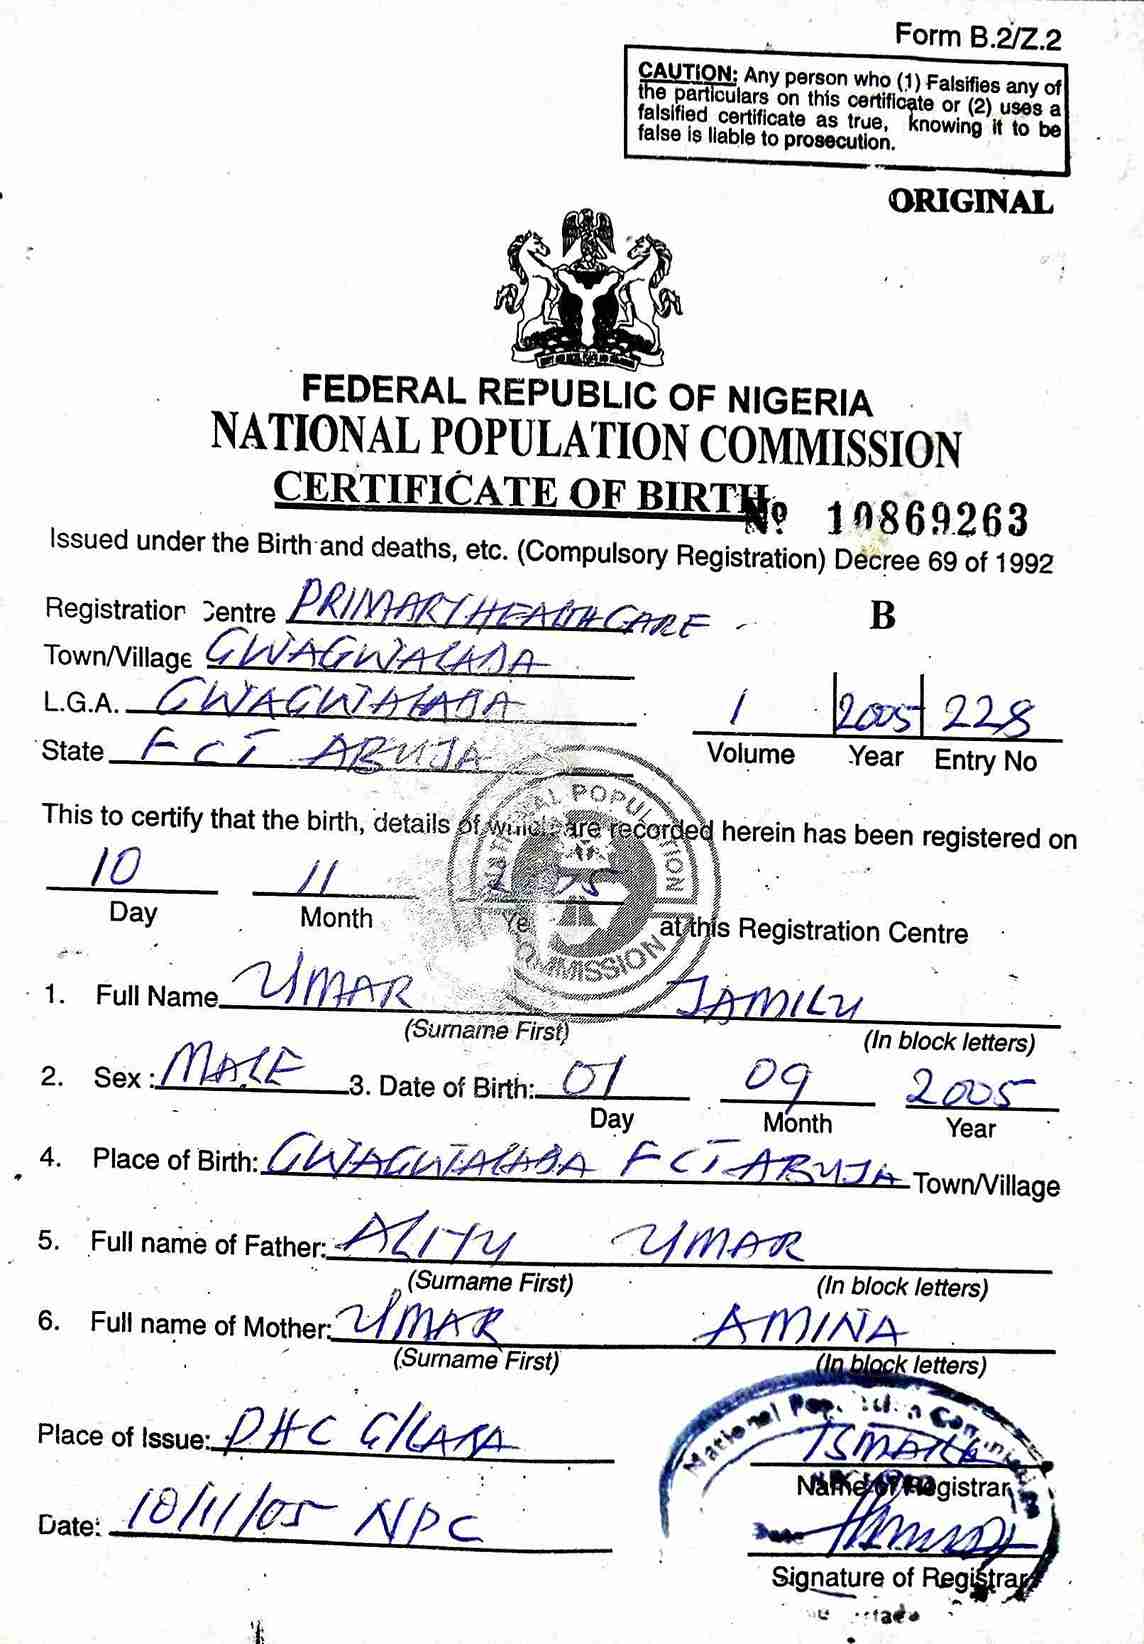 Form B.2/Z.2
CAUTION: Any person who (1) Falsifies any of
the particulars on this certificate or (2) uses a
falsified certificate as true, knowing it to be
false is liable to prosecution.
ORIGINAL
FEDERAL REPUBLIC OF NIGERIA
NATIONAL POPULATION COMMISSION
CERTIFICATE OF BIRTH
№ 10869263
Issued under the Birth and deaths, etc. (Compulsory Registration) Decree 69 of 1992
Registration Centre PRIMARY HEALTH CARE
B
Town/Village GWAGWALADA
L.G.A. GWAGWALADA
1 2005 228
State FCT ABUJA
Volume Year Entry No
This to certify that the birth, details of which are recorded herein has been registered on
10 11
Day Month at this Registration Centre
NATIONAL POPULATION COMMISSION
1. Full Name UMAR JAMILU
(Surname First) (In block letters)
2. Sex: MALE 3. Date of Birth: 01 09 2005
Day Month Year
4. Place of Birth: GWAGWALADA FCT ABUJA Town/Village
5. Full name of Father: ALIYU UMAR
(Surname First) (In block letters)
6. Full name of Mother: UMAR AMINA
(Surname First) (In block letters)
National Population Commission
Place of Issue: PHC G/LADA ISMAILA
Name of Registrar
Date: 10/11/05 NPC
Signature of Registrar